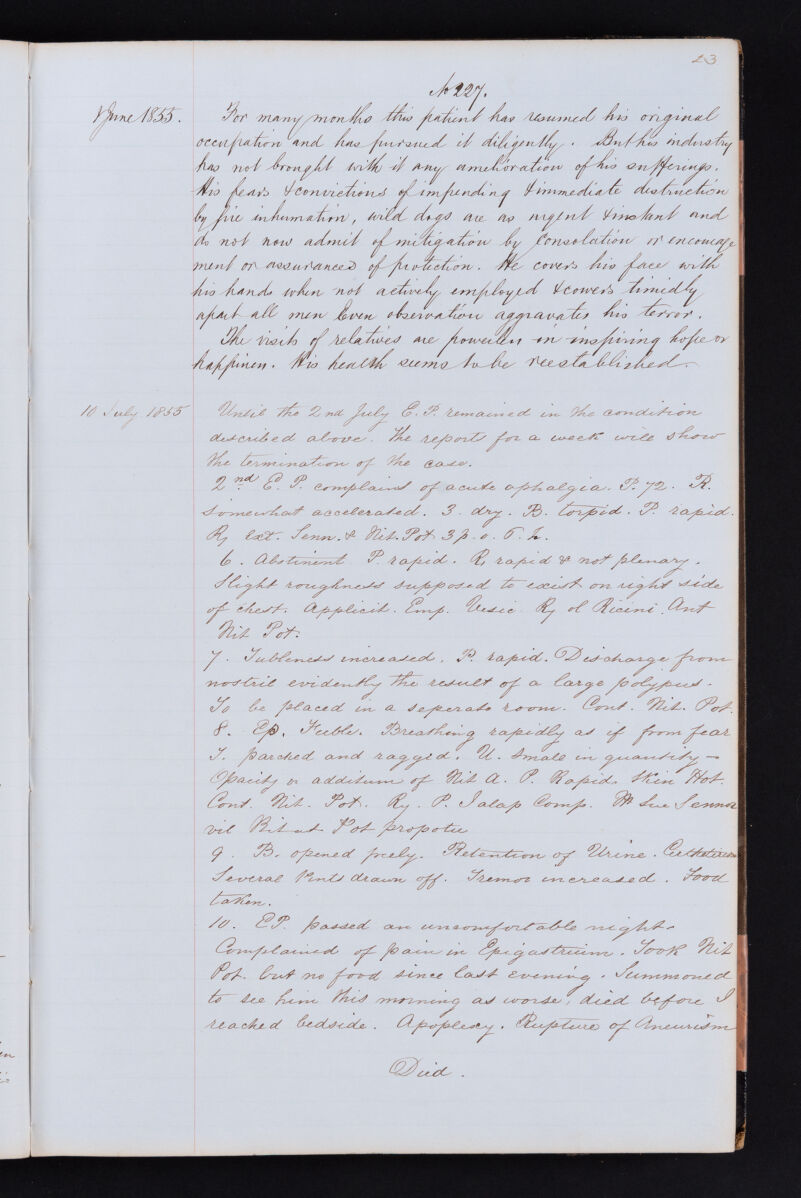 23
No 227.
1 June 1855. For many months this patient has resumed his original
occupation and has pursued it diligently. But his industry
has not brought with it any amelioration of his sufferings.
His fears & convictions of impending & immediate distruction
by fire inhumation, wild dogs are as urgent & instant and
do not now admit of mitigation by consolation or encourage
ment or assurances of protection. He covers his face with
his hands when not actively employed & cowers timidly
apart all men Even observation aggravates his terror.
The visits of relatives are powerless in inspiring hope or
happiness. His health seems to be reestablished
10 July 1855 Until the 2nd July E. P. remained in the condition
described above. The report for a week will show
the termination of the case.
2nd E. P. complains of acute ophalgia. P. 72. R.
somewhat accelerated. 3. dry. B. torpid. P. rapid.
Ry Ext. Senn. & Nit. Pot
6. Abstinent P. rapid. R, rapid & not plenary.
Slight roughness supposed to exist on right side
of chest. Applicit. Emp. Vesic Ry ol Ricini. Ant
Nit Pot.
7. Subleness increased. P. rapid. Discharge from
nostril evidently the result of a large polypus.
To be placed in a seperate room. Cont. Nit. Pot.
8. Ep. Feeble. Breathing rapidly as if from fear
T. parched and ragged. U. small in quantity –
Opacity on additum of Nit A. P. Rapid. Skin Hot.
Cont. Nit. Pot. Ry. P. Jalap Comp. Senna
vil Bit Pot propotu
9. B. opened freely. Retention of Urine.
Several Pints drawn off. Tremor increased. Food
taken.
10. EP. passed an uncomfortable night.
Complained of pain in Epigastrium. Took Nit
Pot. but no food since last evening. Summoned
to see him this morning as worse, died before I
reached bedside. Apoplexy. Rupture of Aneurism
Died.